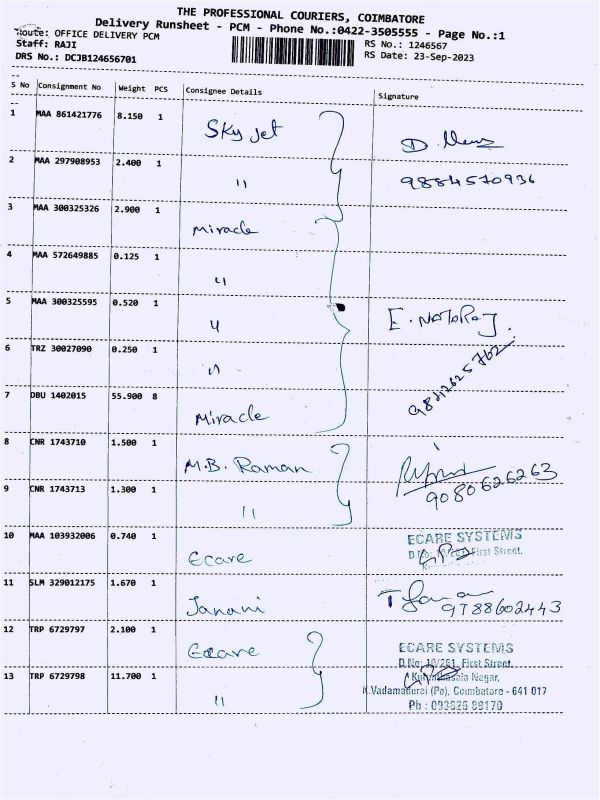 THE PROFESSIONAL COURIERS, COIMBATORE
Delivery Runsheet - PCM - Phone No.:0422-3505555 - Page No.:1
Route: OFFICE DELIVERY PCM
Staff: RAJI
DRS No.: DCJB124656701
RS No.: 1246567
RS Date: 23-Sep-2023
S No Consignment No Weight PCS Consignee Details Signature
1 MAA 861421776 8.150 1 Sky jet
2 MAA 297908953 2.400 1 " 9884570936
3 MAA 300325326 2.900 1 Miracle
4 MAA 572649885 0.125 1 "
5 MAA 300325595 0.520 1 " E. NATARAJ.
6 TRZ 30027090 0.250 1 " 9842625762
7 DBU 1402015 55.900 8 Miracle
8 CNR 1743710 1.500 1 M.B. Raman
9 CNR 1743713 1.300 1 " 9080626263
10 MAA 103932006 0.740 1 Ecare ECARE SYSTEMS
D.No: 10/261, First Street,
11 SLM 329012175 1.670 1 Janani 9788602443
12 TRP 6729797 2.100 1 Ecare ECARE SYSTEMS
D.No: 10/261, First Street,
13 TRP 6729798 11.700 1 " Nagar,
K.Vadamadurai (Po), Coimbatore - 641 017
Ph :